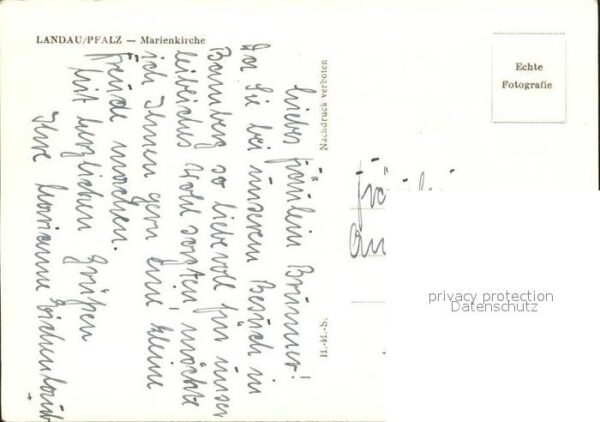 LANDAU/PFALZ — Marienkirche
Liebes Fräulein Brünner!
Da Sie bei unserem Besuch in
Bamberg so liebevoll für unser
leibliches Wohl sorgten, möchte
ich Ihnen gern eine kleine
Freude machen.
Mit herzlichen Grüßen
Ihre Marianne Eichenlaub
Nachdruck verboten
H.-H.-S.
Echte
Fotografie
Fräulein
privacy protection
Datenschutz